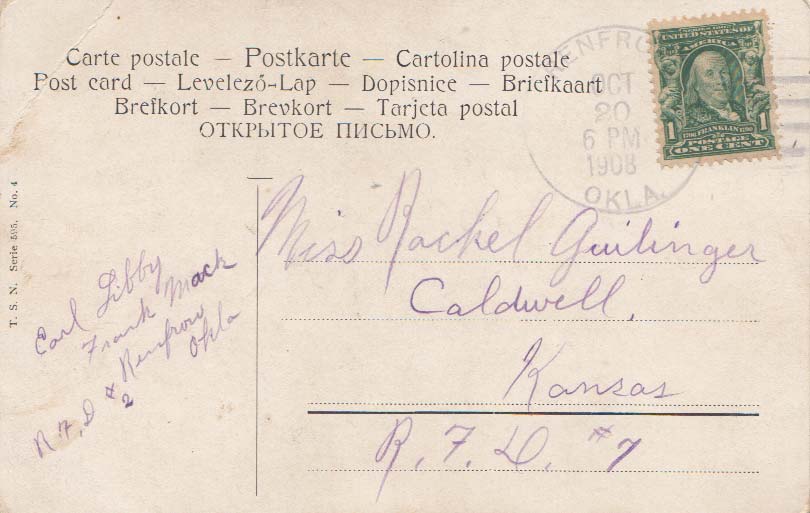 Carte postale — Postkarte — Cartolina postale
Post card — Levelező-Lap — Dopisnice — Briefkaart
Brefkort — Brevkort — Tarjeta postal
ОТКРЫТОЕ ПИСЬМО.
RENFRO
OCT
20
6 PM
1908
OKLA.
SERIES 1902
UNITED STATES OF
AMERICA
1 1706 FRANKLIN 1790 1
POSTAGE
ONE CENT
T. S. N. Serie 595. No. 4
Miss Rachel Guilinger
Caldwell,
Kansas
R. F. D. #7
Earl Libby
Frank Mack
Renfrow
Okla
R. F. D #2